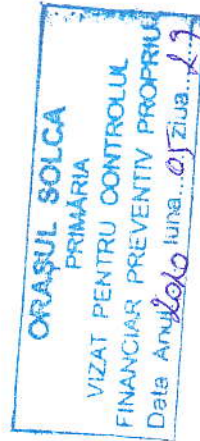 ORAȘUL SOLCA
PRIMĂRIA
VIZAT PENTRU CONTROLUL
FINANCIAR PREVENTIV PROPRIU
Data Anul 2010 luna...05 ziua...